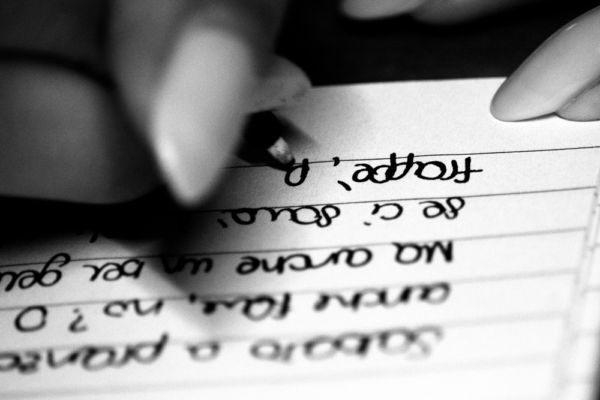 Sabato a pranzo
anche fare, no? O
Ma anche un bel gel
Se ci sarai
frappè, p